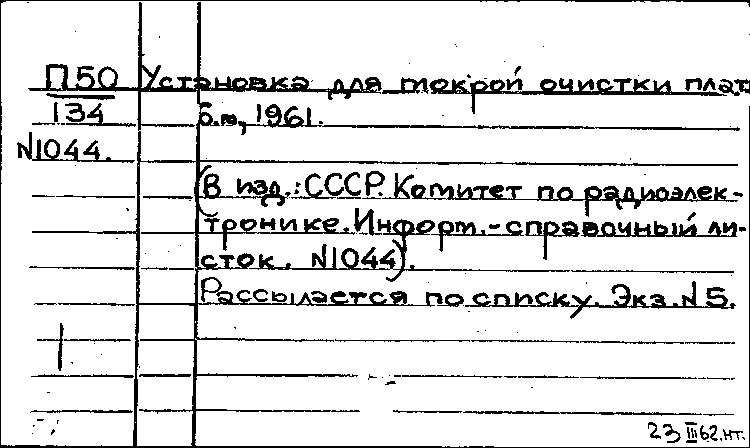 П50 Установка для мокрой очистки плат
134 б.м., 1961.
N1044.
(В изд.: СССР. Комитет по радиоэлек-
тронике. Информ.-справочный ли-
сток. N1044).
Рассылается по списку. Экз. N5.
23 III 62. нт.